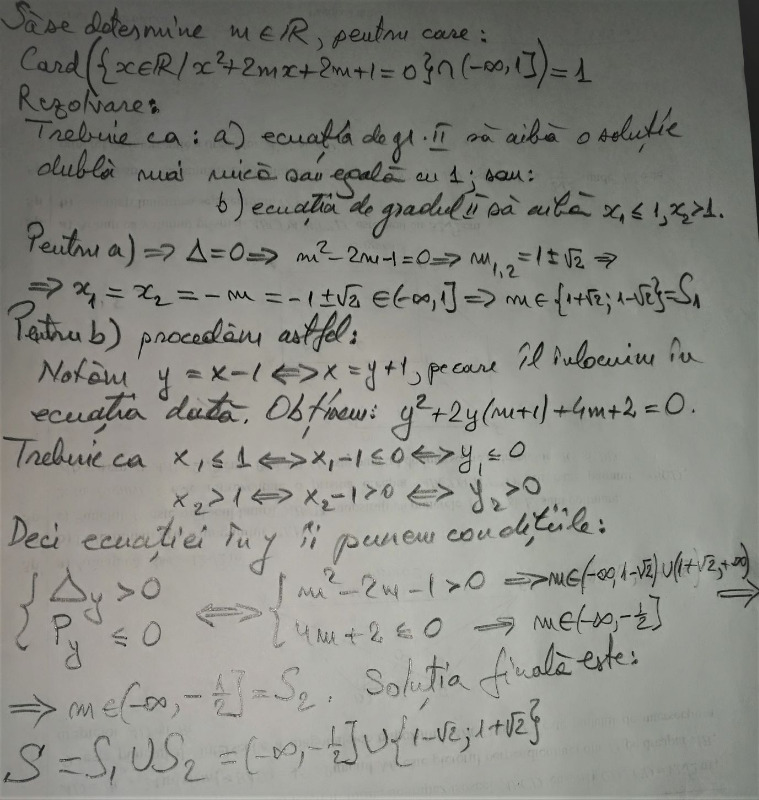 Să se determine m ∈ ℝ, pentru care:
Card({x∈ℝ/x²+2mx+2m+1=0}∩(-∞,1])=1
Rezolvare:
Trebuie ca: a) ecuația de gr. II să aibă o soluție
dublă mai mică sau egală cu 1; sau:
b) ecuația de gradul II să aibă x₁≤1, x₂>1.
Pentru a) ⇒ Δ=0 ⇒ m²-2m-1=0 ⇒ m₁,₂=1±√2 ⇒
⇒ x₁=x₂=-m=-1±√2 ∈(-∞,1] ⇒ m∈{1+√2; 1-√2}=S₁
Pentru b) procedăm astfel:
Notăm y=x-1 ⇔ x=y+1, pe care îl înlocuim în
ecuația dată. Obținem: y²+2y(m+1)+4m+2=0.
Trebuie ca x₁≤1 ⇔ x₁-1≤0 ⇔ y₁≤0
x₂>1 ⇔ x₂-1>0 ⇔ y₂>0
Deci ecuației în y îi punem condițiile:
{ Δy>0 ⇔ { m²-2m-1>0 ⇒ m∈(-∞,1-√2)∪(1+√2,+∞)
{ Py≤0 { 4m+2≤0 ⇒ m∈(-∞,-1/2] ⇒
⇒ m∈(-∞,-1/2]=S₂. Soluția finală este:
S=S₁∪S₂=(-∞,-1/2]∪{1-√2; 1+√2}